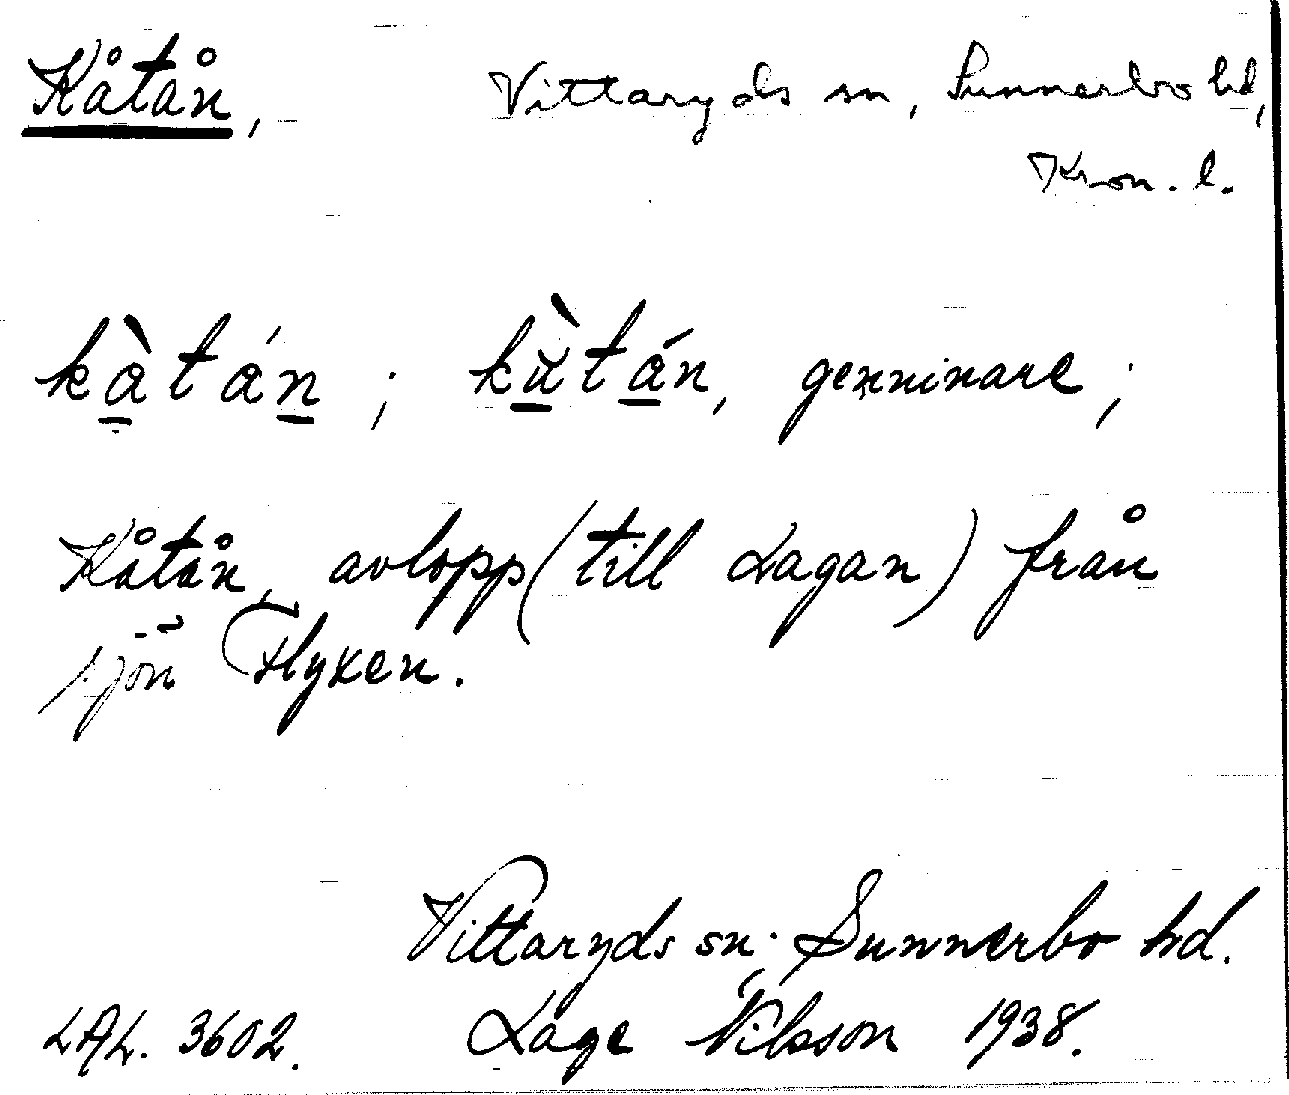 Kåtån,
Vittaryds sn, Sunnerbo hd,
Kron. l.
kàtán; kùtán, genuinare;
Kåtån, avlopp (till Lagan) från
sjön Flyxen.
Vittaryds sn. Sunnerbo hd.
LAL. 3602. Lage Nilsson 1938.